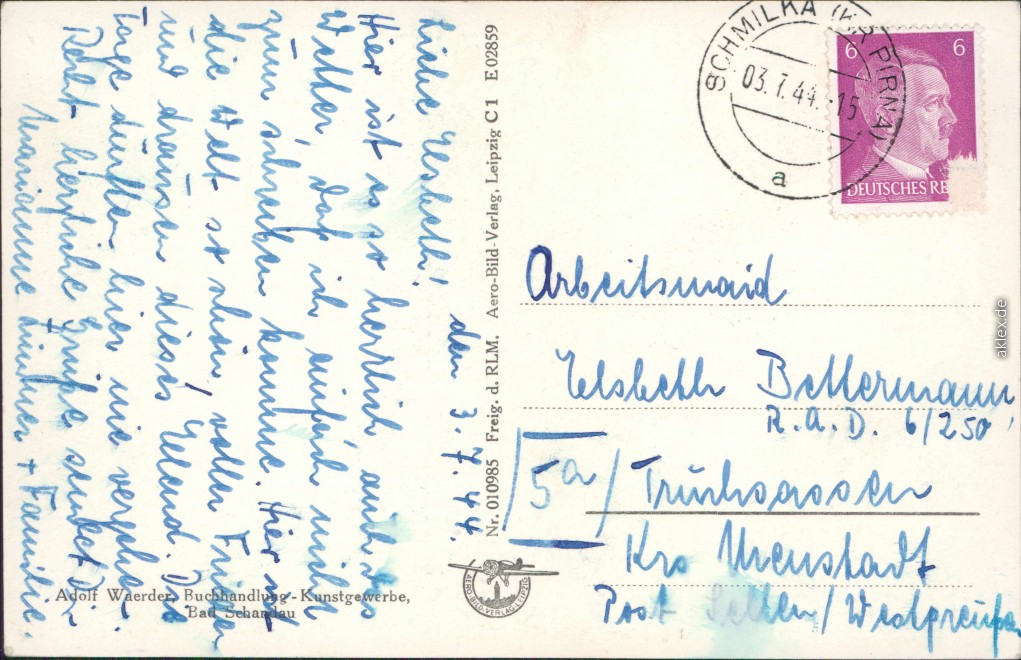 den 3.7.44.
Liebe Elsbeth!
Hier ist es so herrlich auch das
Wetter, daß ich einfach nicht
zum schreiben komme. Hier ist
die Welt so schön, voller Frieden
und draussen dieses Elend. Die
Tage dürften hier nie vergehen.
Recht herzliche Grüße sendet Dir
Marianne + Familie.
Nr. 010985 Freig. d. RLM. Aero-Bild-Verlag, Leipzig C 1 E 02859
Adolf Waerder, Buchhandlung - Kunstgewerbe,
Bad Schandau
AERO-BILD-VERLAG-LEIPZIG
SCHMILKA (KR PIRNA)
03.7.44.-15
a
6 6
DEUTSCHES RE
Arbeitsmaid
Elsbeth Bettermann
R.A.D. 6/250
/5a/ Trunk
Krs Neustadt
Post /Westpreußen
aklex.de